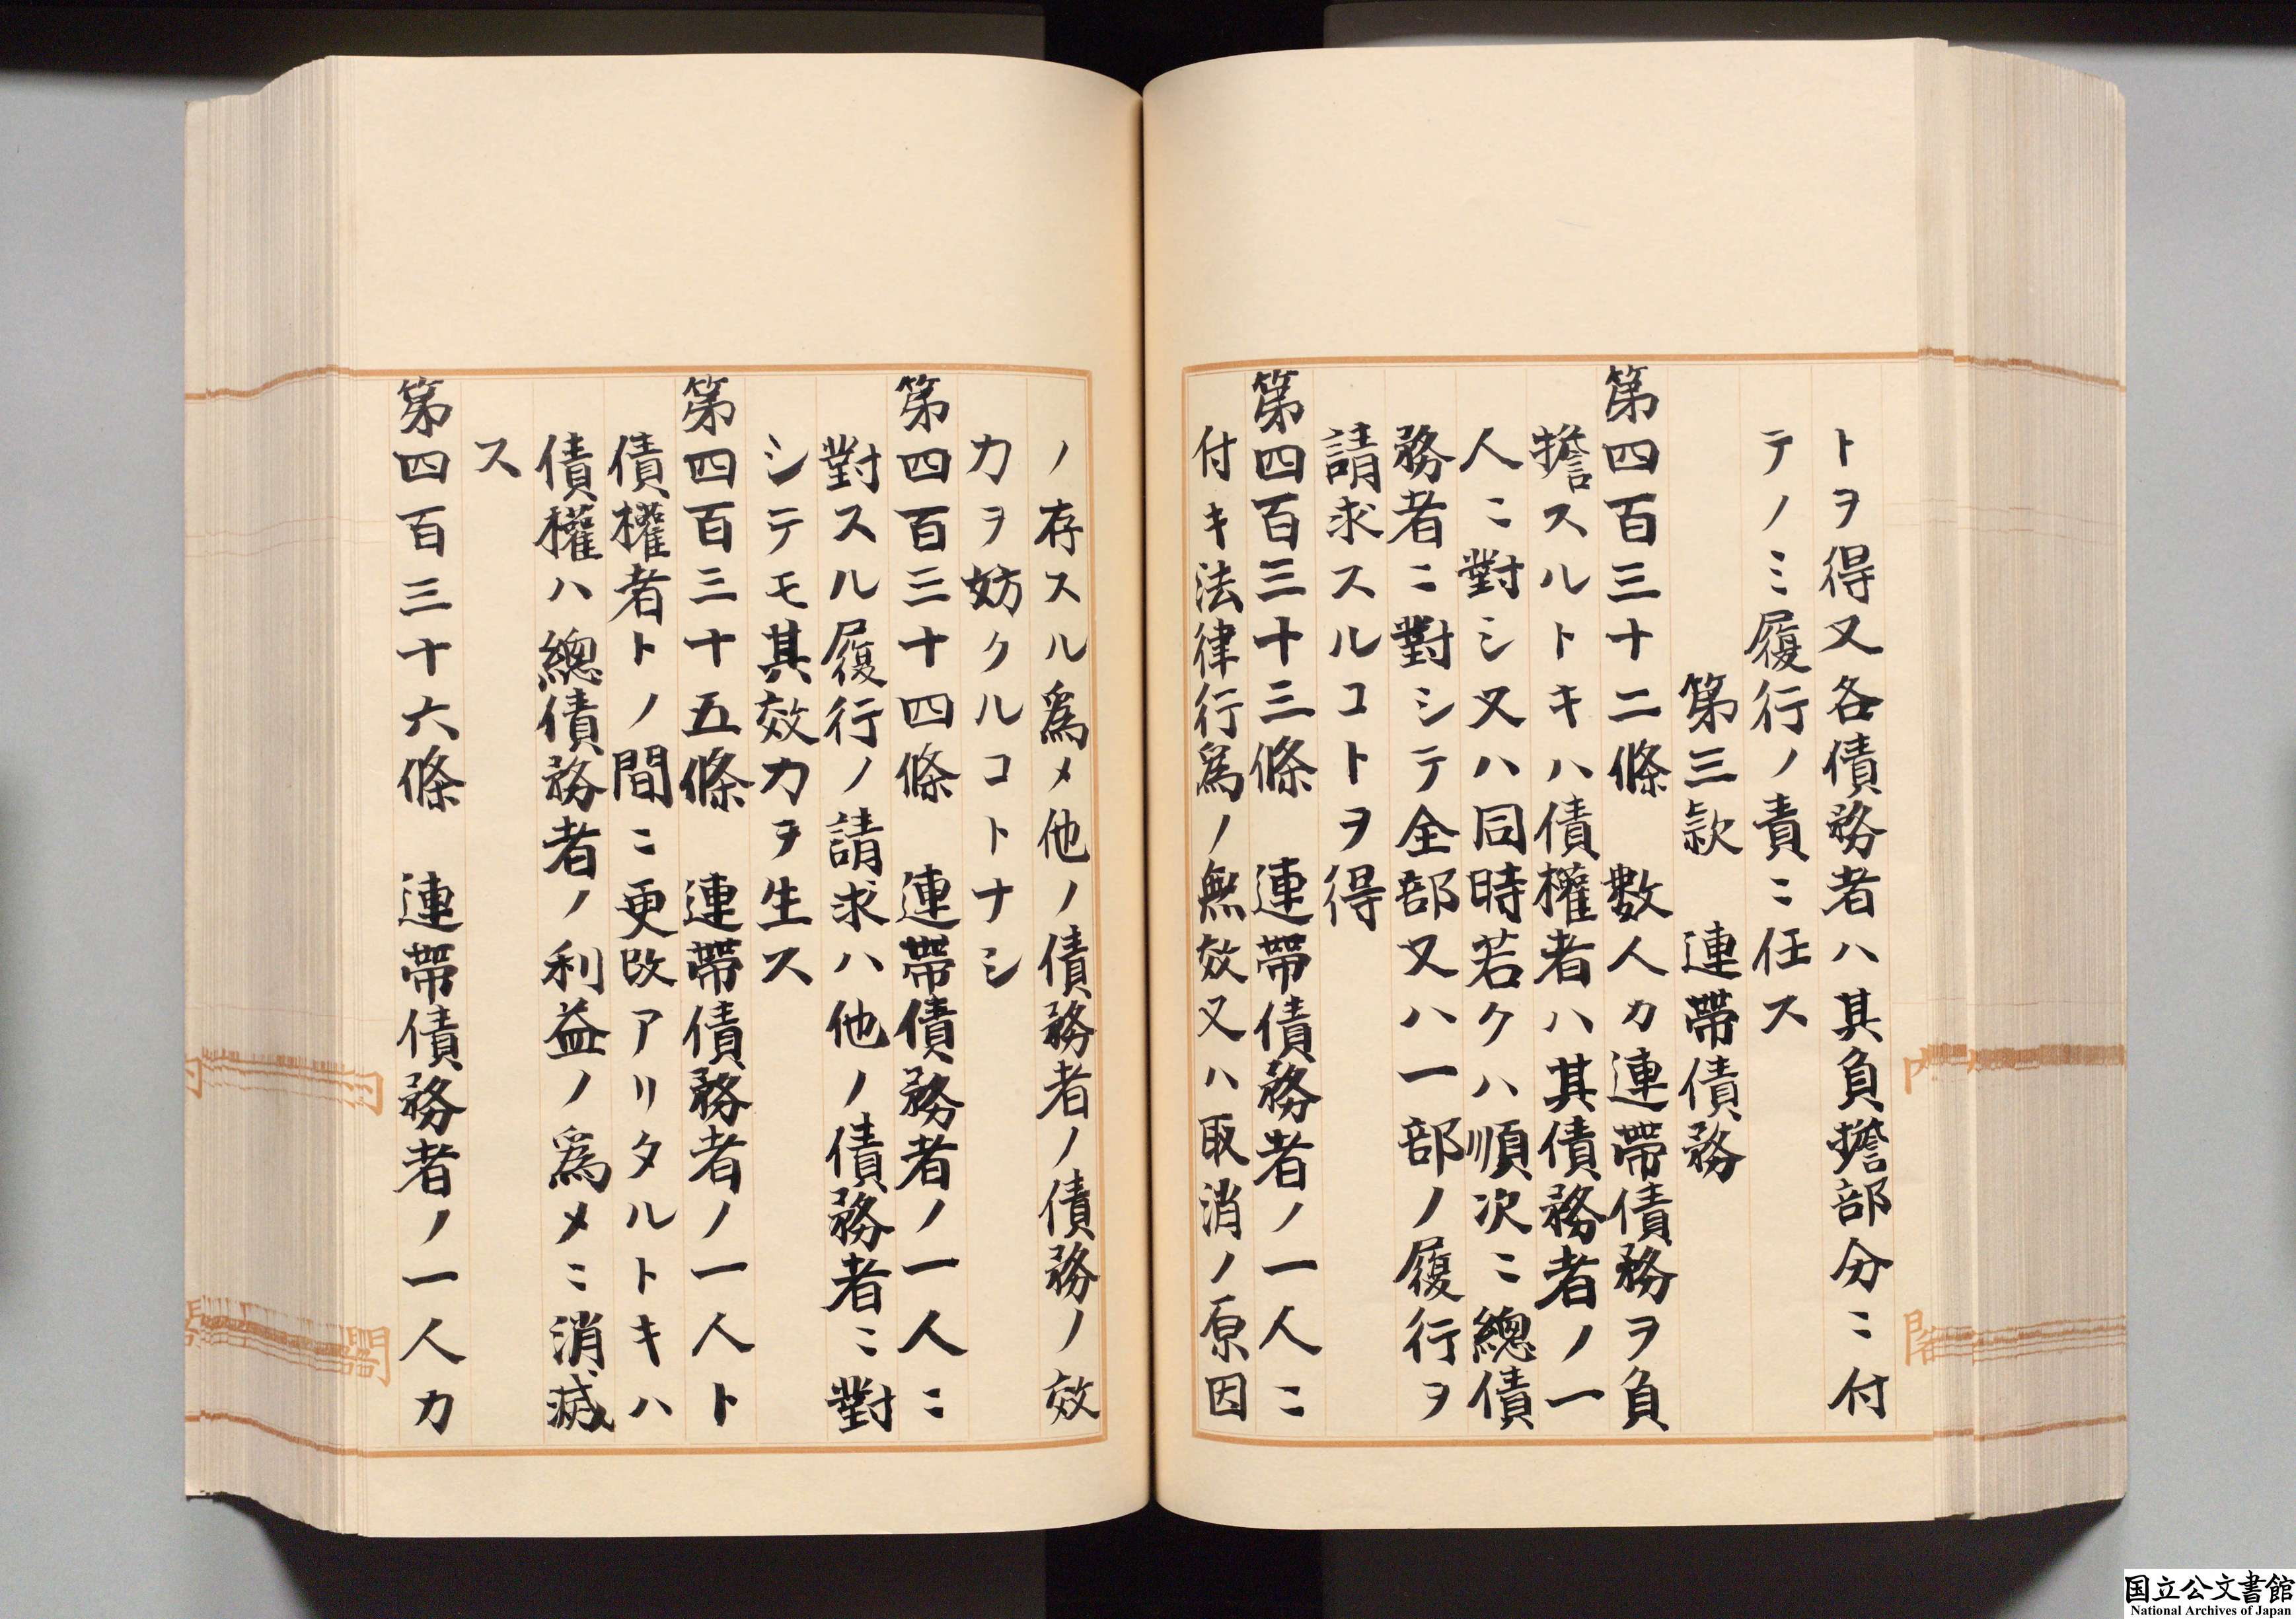 トヲ得又各債務者ハ其負擔部分ニ付
テノミ履行ノ責ニ任ス
第三款　連帶債務
第四百三十二條　數人カ連帶債務ヲ負
擔スルトキハ債權者ハ其債務者ノ一
人ニ對シ又ハ同時若クハ順次ニ總債
務者ニ對シテ全部又ハ一部ノ履行ヲ
請求スルコトヲ得
第四百三十三條　連帶債務者ノ一人ニ
付キ法律行爲ノ無效又ハ取消ノ原因
ノ存スル爲メ他ノ債務者ノ債務ノ效
力ヲ妨クルコトナシ
第四百三十四條　連帶債務者ノ一人ニ
對スル履行ノ請求ハ他ノ債務者ニ對
シテモ其效力ヲ生ス
第四百三十五條　連帶債務者ノ一人ト
債權者トノ間ニ更改アリタルトキハ
債權ハ總債務者ノ利益ノ爲メニ消滅
ス
第四百三十六條　連帶債務者ノ一人カ
内
閣
国立公文書館
National Archives of Japan